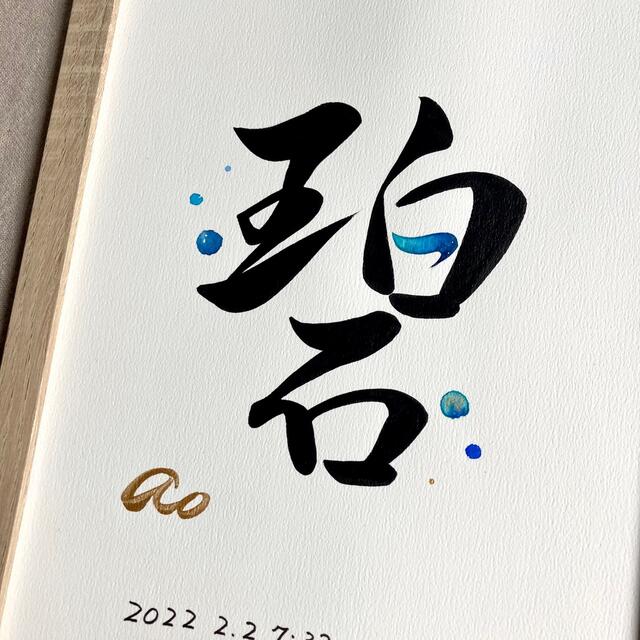 碧
ao
2022 2.2 7:32